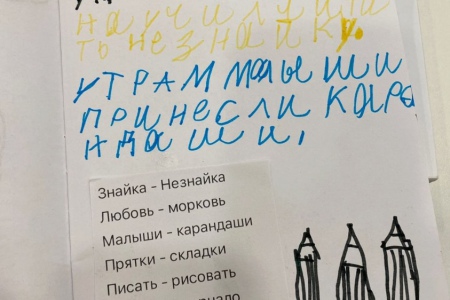 научили
ть незнайку.
УТРАМ МалышИ
ПРИНЕСЛИ КАРа
НДАШИ,
Знайка - Незнайка
Любовь - морковь
Малыши - карандаши
Прятки - складки
Писать - рисовать